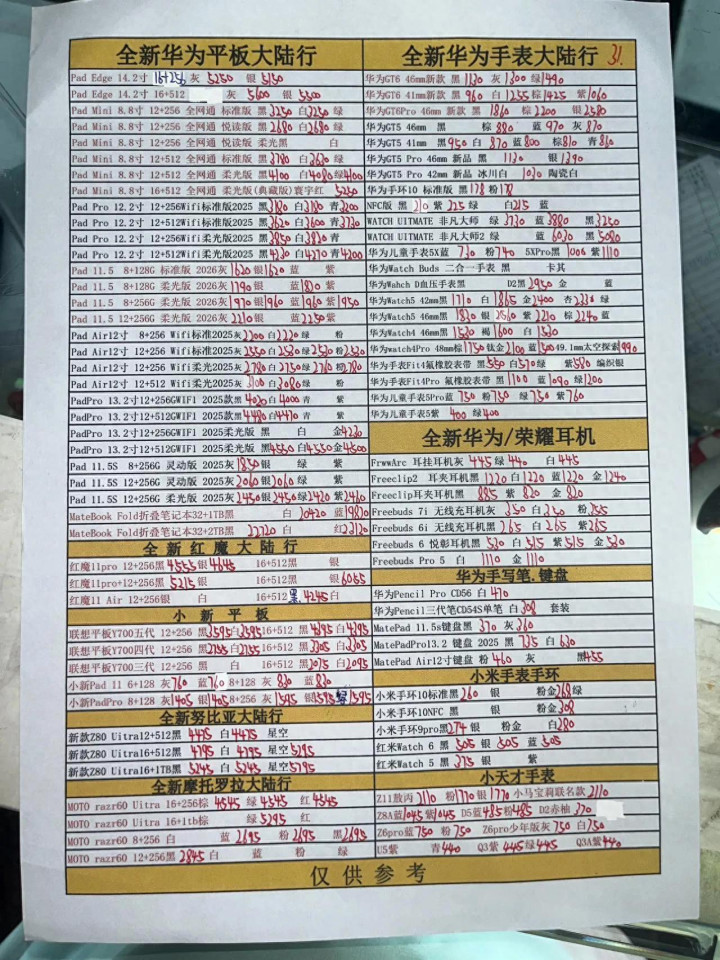 全新华为平板大陆行
Pad Edge 14.2寸 16+256 灰 5250 银 5150
Pad Edge 14.2寸 16+512 灰 5600 银 5500
Pad Mini 8.8寸 12+256 全网通 标准版 黑3250白3250 绿
Pad Mini 8.8寸 12+256 全网通 悦读版 黑2680白2680 绿
Pad Mini 8.8寸 12+256 全网通 柔光黑 白
Pad Mini 8.8寸 12+512 全网通 标准版 黑3780白3630 绿
Pad Mini 8.8寸 12+512 全网通 柔光版 黑4100 白4080绿4100
Pad Mini 8.8寸 16+512 全网通 柔光版(典藏版)寰宇红 5250
Pad Pro 12.2寸 12+256Wifi标准版2025 黑3180白3180青3200
Pad Pro 12.2寸 12+512Wifi标准版2025 黑3620白3600青3730
Pad Pro 12.2寸 12+256Wifi柔光版2025 黑3850白3820青
Pad Pro 12.2寸 12+512Wifi柔光版2025 黑4230白4270青4200
Pad 11.5 8+128G 标准版 2026灰1620银1620 蓝 紫
Pad 11.5 8+128G 柔光版 2026灰1790银 蓝1820 紫
Pad 11.5 8+256G 柔光版 2026灰1970银1960蓝1960紫1950
Pad 11.5 12+256G 柔光版 2026灰2210银 蓝2250紫
Pad Air12寸 8+256 Wifi标准2025灰2200白2220绿 粉
Pad Air12寸 12+256 Wifi标准2025灰2550白2520绿2530粉2520
Pad Air12寸 12+256 Wifi柔光2025灰2780白2750绿2760粉2780
Pad Air12寸 12+512 Wifi柔光2025灰3100白3080绿 粉
PadPro 13.2寸12+256GWIFI 2025款黑4020白4000青 紫
PadPro 13.2寸12+512GWIFI 2025款黑4480白4470青 紫
PadPro 13.2寸12+256GWIFI 2025柔光版 黑 白 金4230
PadPro 13.2寸12+512GWIFI 2025柔光版 黑4550白4550金4500
Pad 11.5S 8+256G 灵动版 2025灰1850银 绿 紫
Pad 11.5S 12+256G 灵动版 2025灰2060银2060 绿 紫
Pad 11.5S 12+256G 柔光版 2025灰2450银2450绿2420紫2460
MateBook Fold折叠笔记本32+1TB黑 白 20420 蓝19820
MateBook Fold折叠笔记本32+2TB黑 22720 白 红23120
全新红魔大陆行
红魔11pro 12+256黑4555银4645 16+512黑 银
红魔11pro+12+256黑5215银 16+512黑 银6065
红魔11 Air 12+256银 白 16+512黑4245白
小新平板
联想平板Y700五代 12+256 黑3595白3595 16+512 黑4395白4395
联想平板Y700四代 12+256 黑2755白2755 16+512 黑3305白3305
联想平板Y700三代 12+256 黑 白 16+512黑3075白3095
小新Pad 11 6+128 灰760 蓝760 8+128 灰830 蓝830
小新PadPro 8+128 灰1405 银1405 8+256 灰1595 银1595 绿1595
全新努比亚大陆行
新款Z80 Uitra12+512黑 4475 白4475 星空
新款Z80 Uitra16+512黑 4795 白4795 星空5295
新款Z80 Uitra16+1TB黑 5245 白5245 星空5795
全新摩托罗拉大陆行
MOTO razr60 Uitra 16+256棕 4545 绿4545 红4545
MOTO razr60 Uitra 16+1tb棕 绿5295 红
MOTO razr60 8+256 白 蓝2695 粉2695 黑2695
MOTO razr60 12+256黑2845白 蓝 粉 绿
全新华为手表大陆行 31.
华为GT6 46mm新款 黑1130 灰1300绿1490
华为GT6 41mm新款 黑 960 白1255棕1425 紫1060
华为GT6Pro 46mm 新款 黑1860 棕2200 银2580
华为GT5 46mm 黑 棕880 蓝970灰870
华为GT5 41mm 黑950白 870蓝800 棕810 青860
华为GT5 Pro 46mm 新品 黑 1130 银1390
华为GT5 Pro 42mm 新品 冰川白 1030陶瓷白
华为手环10 标准版 黑178粉178
NFC版 黑210紫225绿 白215 蓝
WATCH UITMATE 非凡大师 绿 3730 蓝3880 黑3250
WATCH UITMATE 非凡大师2 绿 蓝6030 黑5080
华为儿童手表5X蓝 730 粉740 5XPro黑1006紫1110
华为Watch Buds 二合一手表 黑 卡其
华为Wahch D血压手表黑 D2黑2950金 蓝
华为Watch5 42mm黑1710 白1865金2400 杏2330绿
华为Watch5 46mm黑1820银2560紫2210棕2240蓝
华为Watch4 46mm黑1520褐1600 白1520
华为watch4Pro 48mm棕1750钛金2100蓝1500 49.1mm太空探索1990
华为手表Fit4氟橡胶表带 黑550白570绿 紫580编织银
华为手表Fit4Pro 氟橡胶表带 黑1100 蓝1090绿1200
华为儿童手表5Pro蓝 750 粉750 绿750紫760
华为儿童手表5紫 400绿400
全新华为/荣耀耳机
FrwwArc 耳挂耳机灰 445绿440 白445
Freeclip2 耳夹耳机黑1220白1220 蓝1220 金1240
Freeclip耳夹耳机黑 885紫 820金820
Freebuds 7i 无线充耳机灰 350白350 粉355
Freebuds 6i 无线充耳机黑265 白265 紫265
Freebuds 6 悦彰耳机黑520白515紫515金530
Freebuds Pro 5 白 1110 金1110
华为手写笔.键盘
华为Pencil Pro CD56 白470
华为Pencil三代笔CD54S单笔 白308 套装
MatePad 11.5s键盘黑370灰360
MatePadPro13.2 键盘 2025 黑735白630
MatePad Air12寸键盘 粉460 灰 黑455
小米手表手环
小米手环10标准黑260 银 粉金268绿
小米手环10NFC 黑 银 粉金308
小米手环9pro黑274银 粉金 白280
红米Watch 6 黑505银505蓝505
红米Watch 5 黑375银 紫
小天才手表
Z11敖丙2110 粉1770银1770小马宝莉联名款2110
Z8A蓝1045紫1045 D5蓝485粉485 D2赤柚370
Z6pro蓝750粉750 Z6pro少年版灰750白750
U5紫 青440 Q3紫445绿445 Q3A紫440
仅供参考